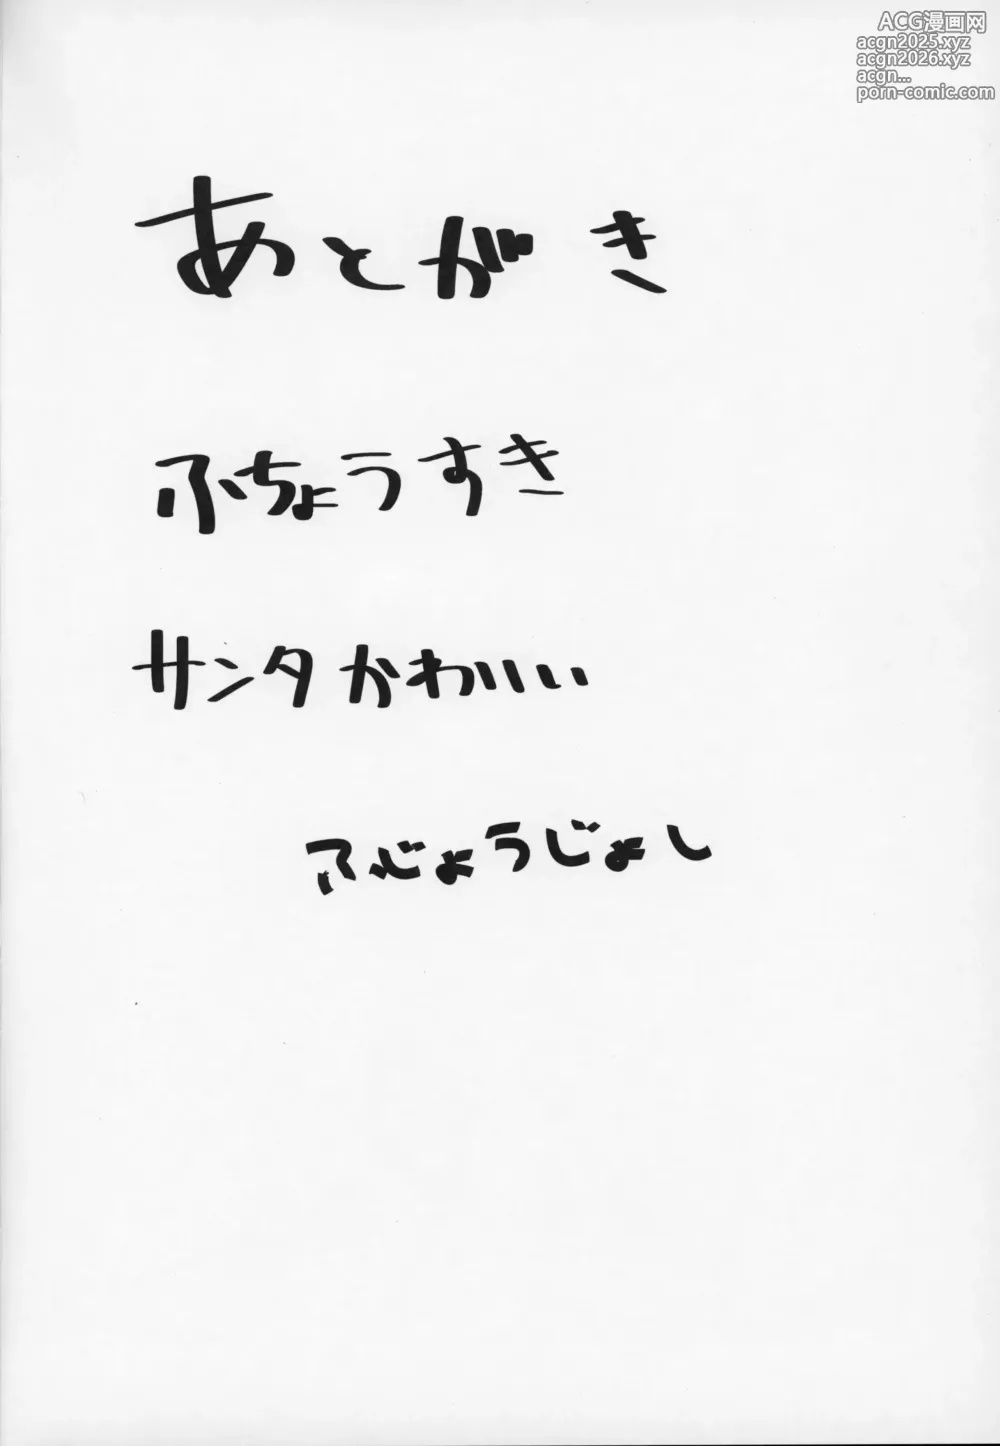 ACG漫画网
acgn2025.xyz
acgn2026.xyz
acgn...
porn-comic.com
あとがき
ふちょうすき
サンタかわいい
ふじょうじょし